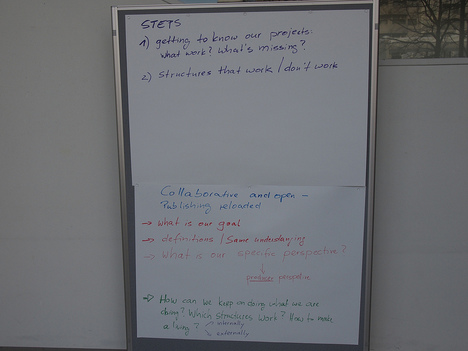 STEPS
1) getting to know our projects:
what work? what's missing?
2) structures that work / don't work
Collaborative and open -
Publishing reloaded
→ what is our goal
→ definitions / Same understanding
→ What is our specific perspective?
↓
producer perspective
→ How can we keep on doing what we are
doing? Which structures work? How to make
a living? internally
externally